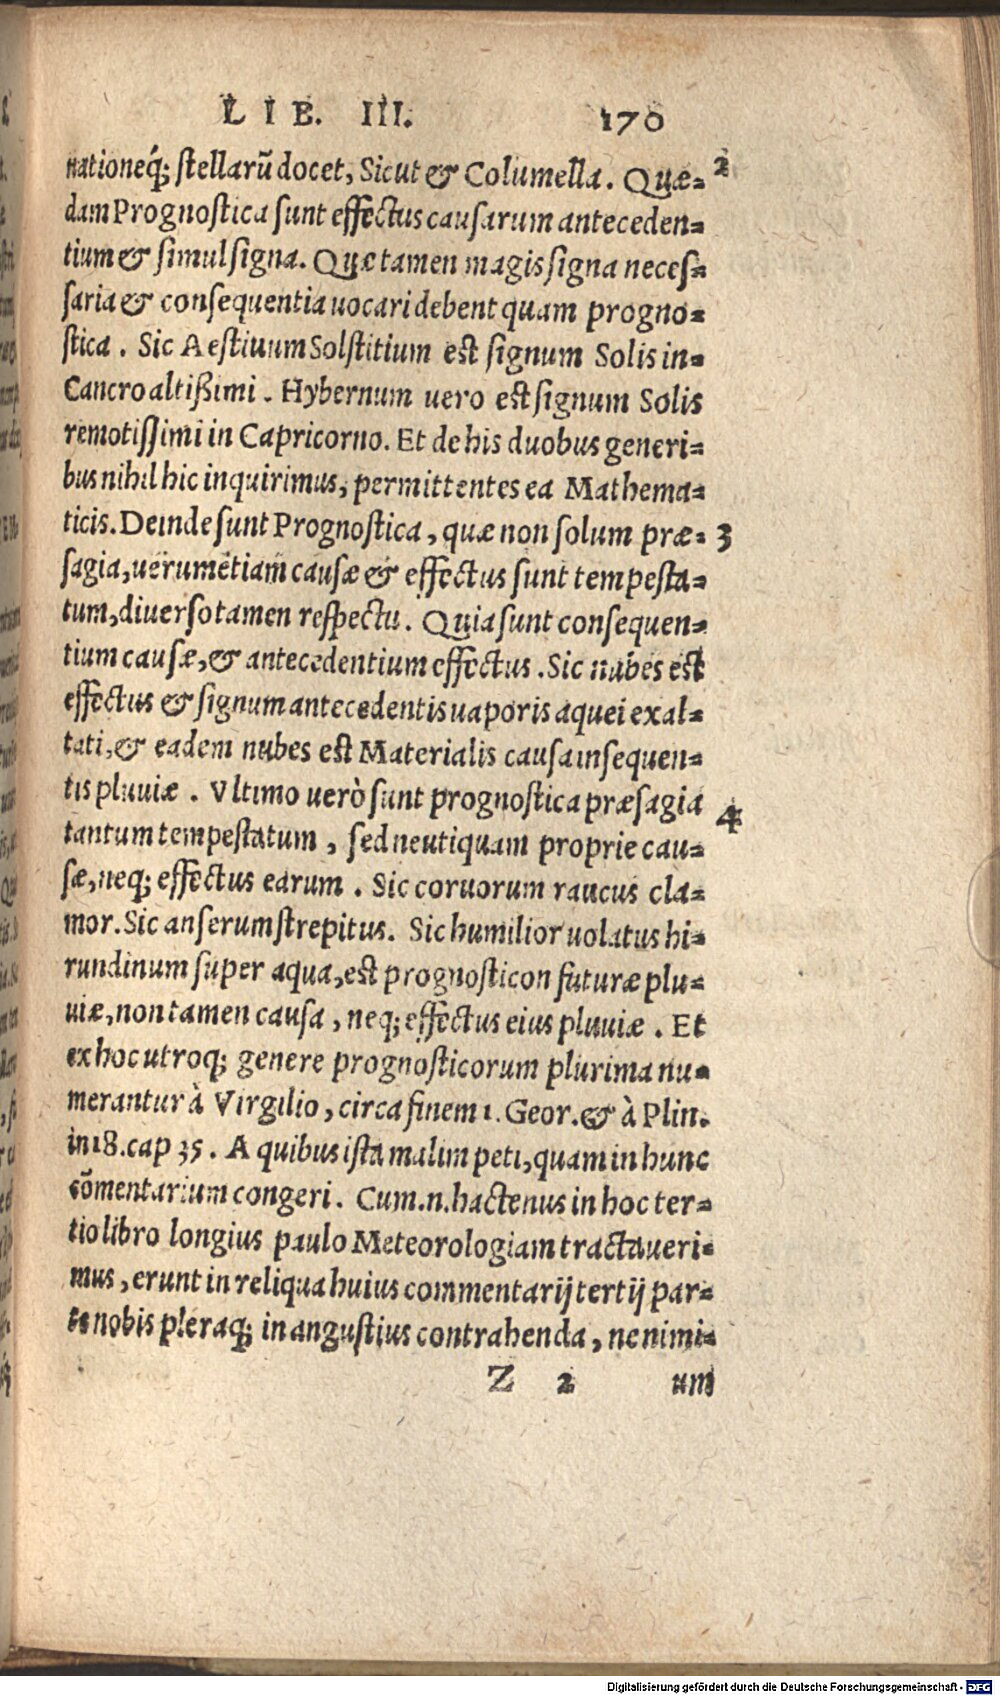 LIB. III. 170
nationeq́; stellarũ docet, Sicut & Columella. Quæ- 2
dam Prognostica sunt effectus causarum anteceden-
tium & simul signa. Quæ tamen magis signa neces-
saria & consequentia uocari debent quam progno-
stica. Sic Aestiuum Solstitium est signum Solis in-
Cancro altißimi. Hybernum uero est signum Solis
remotissimi in Capricorno. Et de his duobus generi-
bus nihil hic inquirimus, permittentes ea Mathema-
ticis. Deinde sunt Prognostica, quæ non solum præ- 3
sagia, uerumetiam causæ & effectus sunt tempesta-
tum, diuerso tamen respectu. Quia sunt consequen-
tium causæ, & antecedentium effectus. Sic nubes est
effectus & signum antecedentis uaporis aquei exal-
tati, & eadem nubes est Materialis causa insequen-
tis pluuiæ. Vltimo uerò sunt prognostica præsagia 4
tantum tempestatum, sed neutiquam proprie cau-
sæ, neq; effectus earum. Sic coruorum raucus cla-
mor. Sic anserum strepitus. Sic humilior uolatus hi-
rundinum super aqua, est prognosticon futuræ plu-
uiæ, non tamen causa, neq; effectus eius pluuiæ. Et
ex hoc utroq; genere prognosticorum plurima nu-
merantur à Virgilio, circa finem 1. Geor. & à Plin.
in 18. cap 35. A quibus ista malim peti, quam in hunc
cõmentarium congeri. Cum.n. hactenus in hoc ter-
tio libro longius paulo Meteorologiam tractaueri-
mus, erunt in reliqua huius commentarij tertij par-
te nobis pleraq; in angustius contrahenda, ne nimi-
Z 2 um
Digitalisierung gefördert durch die Deutsche Forschungsgemeinschaft - DFG